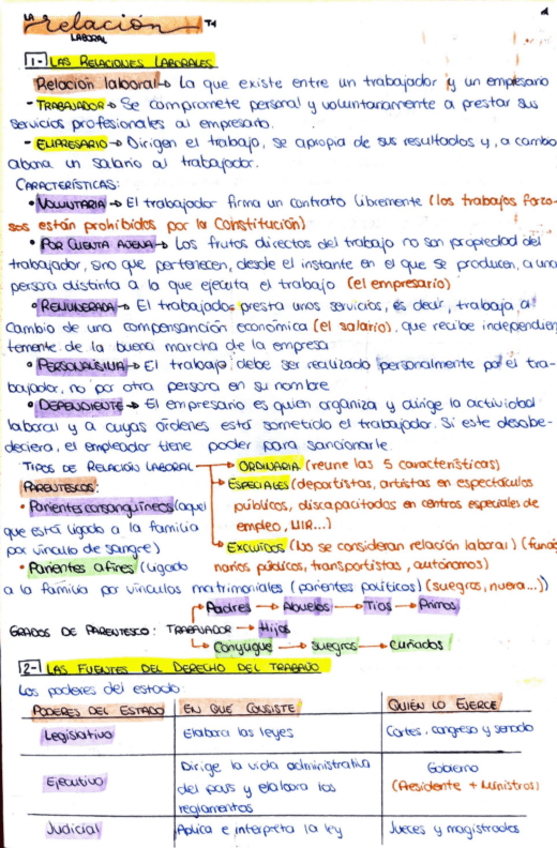 LA relación T4
LABORAL
1
1- LAS RELACIONES LABORALES
Relación laboral → La que existe entre un trabajador y un empresario
- TRABAJADOR → Se compromete personal y voluntariamente a prestar sus
servicios profesionales al empresario.
- EMPRESARIO → Dirigen el trabajo, se apropia de sus resultados y, a cambio
abona un salario al trabajador.
CARACTERÍSTICAS:
• VOLUNTARIA → El trabajador firma un contrato libremente (los trabajos forzo-
sos están prohibidos por la Constitución)
• POR CUENTA AJENA → Los frutos directos del trabajo no son propiedad del
trabajador, sino que pertenecen, desde el instante en el que se producen, a una
persona distinta a la que ejecuta el trabajo (el empresario)
• REMUNERADA → El trabajador presta unos servicios, es decir, trabaja a
cambio de una compensación económica (el salario), que recibe independien
temente de la buena marcha de la empresa
• PERSONALÍSIMA → El trabajo debe ser realizado personalmente por el tra-
bajador, no por otra persona en su nombre
• DEPENDIENTE → El empresario es quien organiza y dirige la actividad
laboral y a cuyas órdenes está sometido el trabajador. Si este desobe-
deciera, el empleador tiene poder para sancionarle.
TIPOS DE RELACIÓN LABORAL → ORDINARIA (reune las 5 características)
→ ESPECIALES (deportistas, artistas en espectáculos
públicos, discapacitados en centros especiales de
empleo, MIR...)
→ EXCLUIDOS (no se consideran relación laboral) (funcio
narios públicos, transportistas, autónomos)
PARENTESCOS:
• Parientes consanguíneos (aquel
que está ligado a la familia
por vínculo de sangre)
• Parientes afines (ligado
a la familia por vínculos matrimoniales (parientes políticos) (suegros, nuera...))
GRADOS DE PARENTESCO: TRABAJADOR → Padres → Abuelos → Tíos → Primos
→ Hijos
→ Conyugue → Suegros → Cuñados
2- LAS FUENTES DEL DERECHO DEL TRABAJO
Los poderes del estado:
PODERES DEL ESTADO EN QUÉ CONSISTE QUIÉN LO EJERCE
Legislativo Elabora las leyes Cortes, congreso y senado
Ejecutivo Dirige la vida administrativa del país y elabora los reglamentos Gobierno (Presidente + Ministros)
Judicial Aplica e interpreta la ley Jueces y magistrados